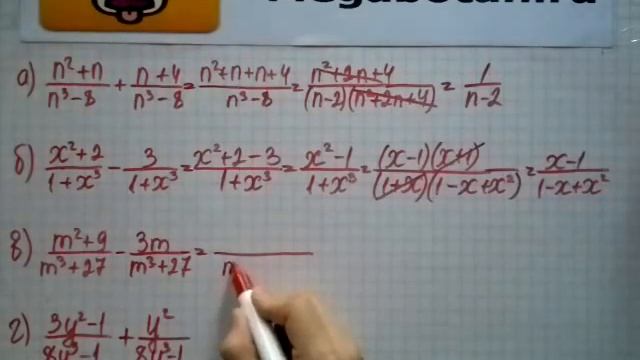 а) (n²+n)/(n³-8) + (n+4)/(n³-8) = (n²+n+n+4)/(n³-8) = (n²+2n+4)/((n-2)(n²+2n+4)) = 1/(n-2)
б) (x²+2)/(1+x³) - 3/(1+x³) = (x²+2-3)/(1+x³) = (x²-1)/(1+x³) = ((x-1)(x+1))/((1+x)(1-x+x²)) = (x-1)/(1-x+x²)
в) (m²+9)/(m³+27) - 3m/(m³+27) =
г) (3y²-1)/(8y³-1) + y²/(8y³-1)